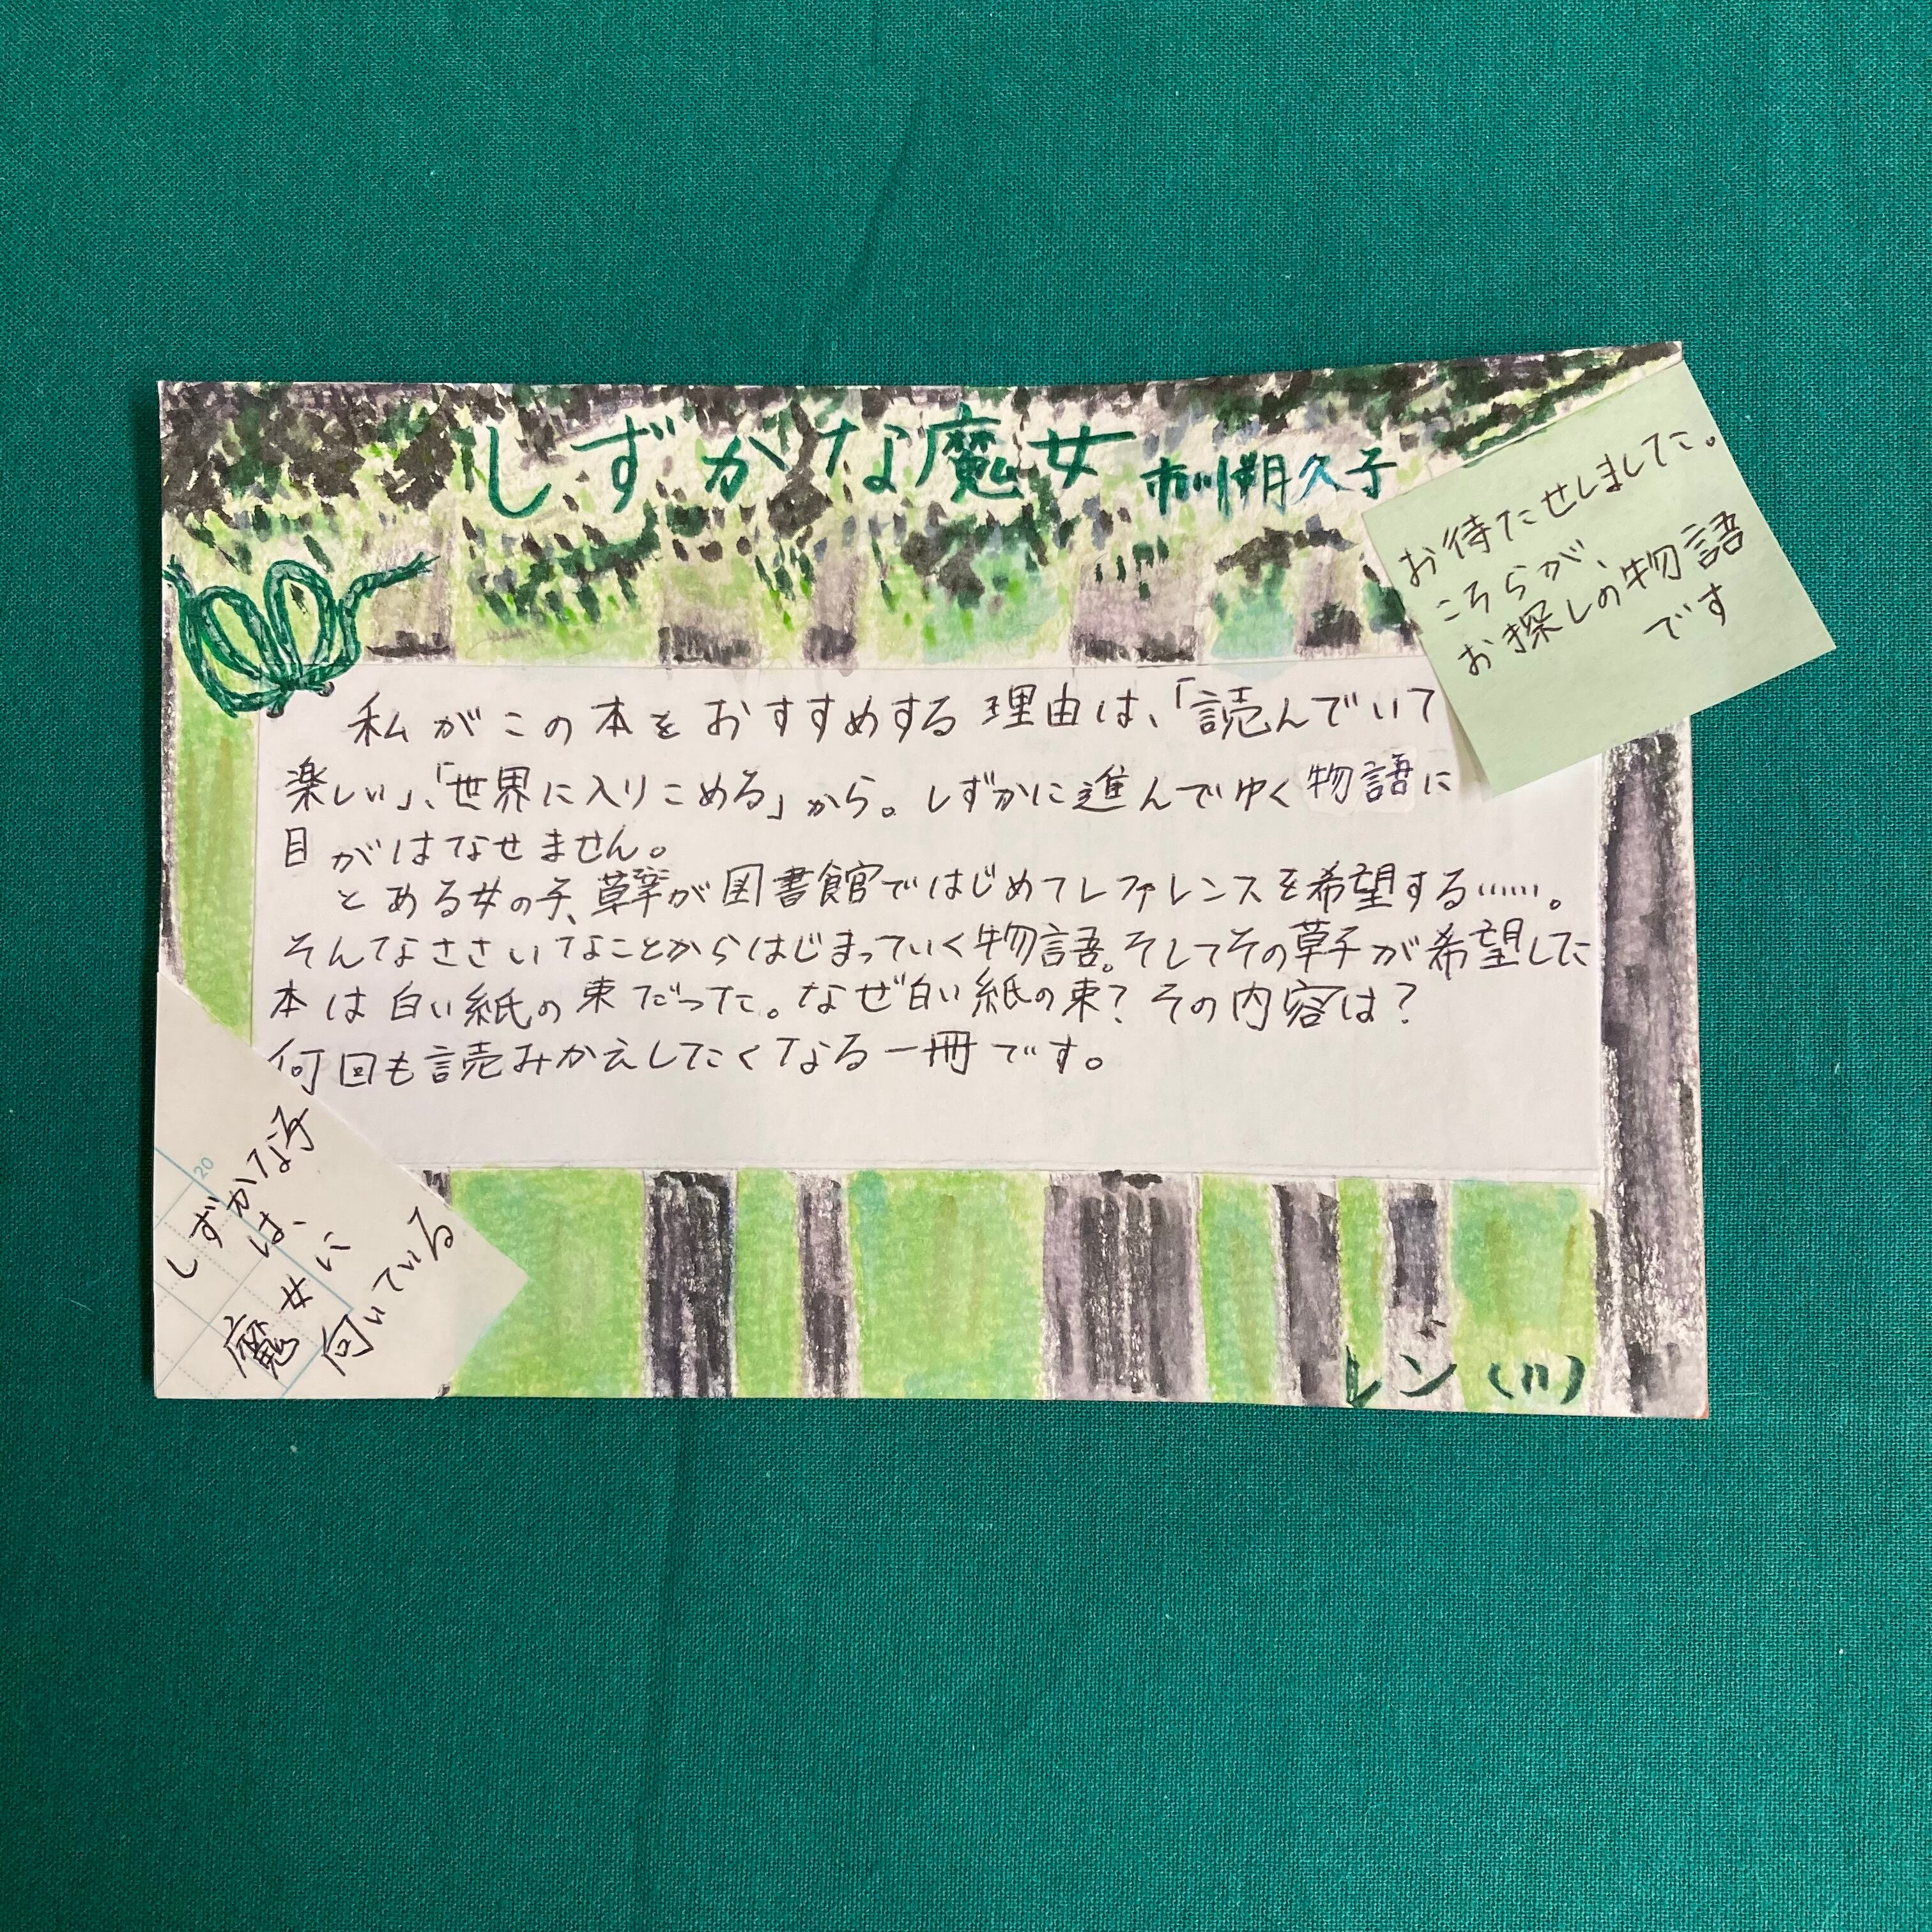 しずかな魔女 市川朔久子
お待たせしました。
こちらが、
お探しの物語
です
私がこの本をおすすめする理由は、「読んでいて
楽しい」、「世界に入りこめる」から。しずかに進んでゆく物語に
目がはなせません。
とある女の子、草子が図書館ではじめてレファレンスを希望する……。
そんなささいなことからはじまっていく物語。そしてその草子が希望した
本は白い紙の束だった。なぜ白い紙の束?その内容は?
何回も読みかえしたくなる一冊です。
20
しずかな子
は、
魔女に
向いている
レン(11)